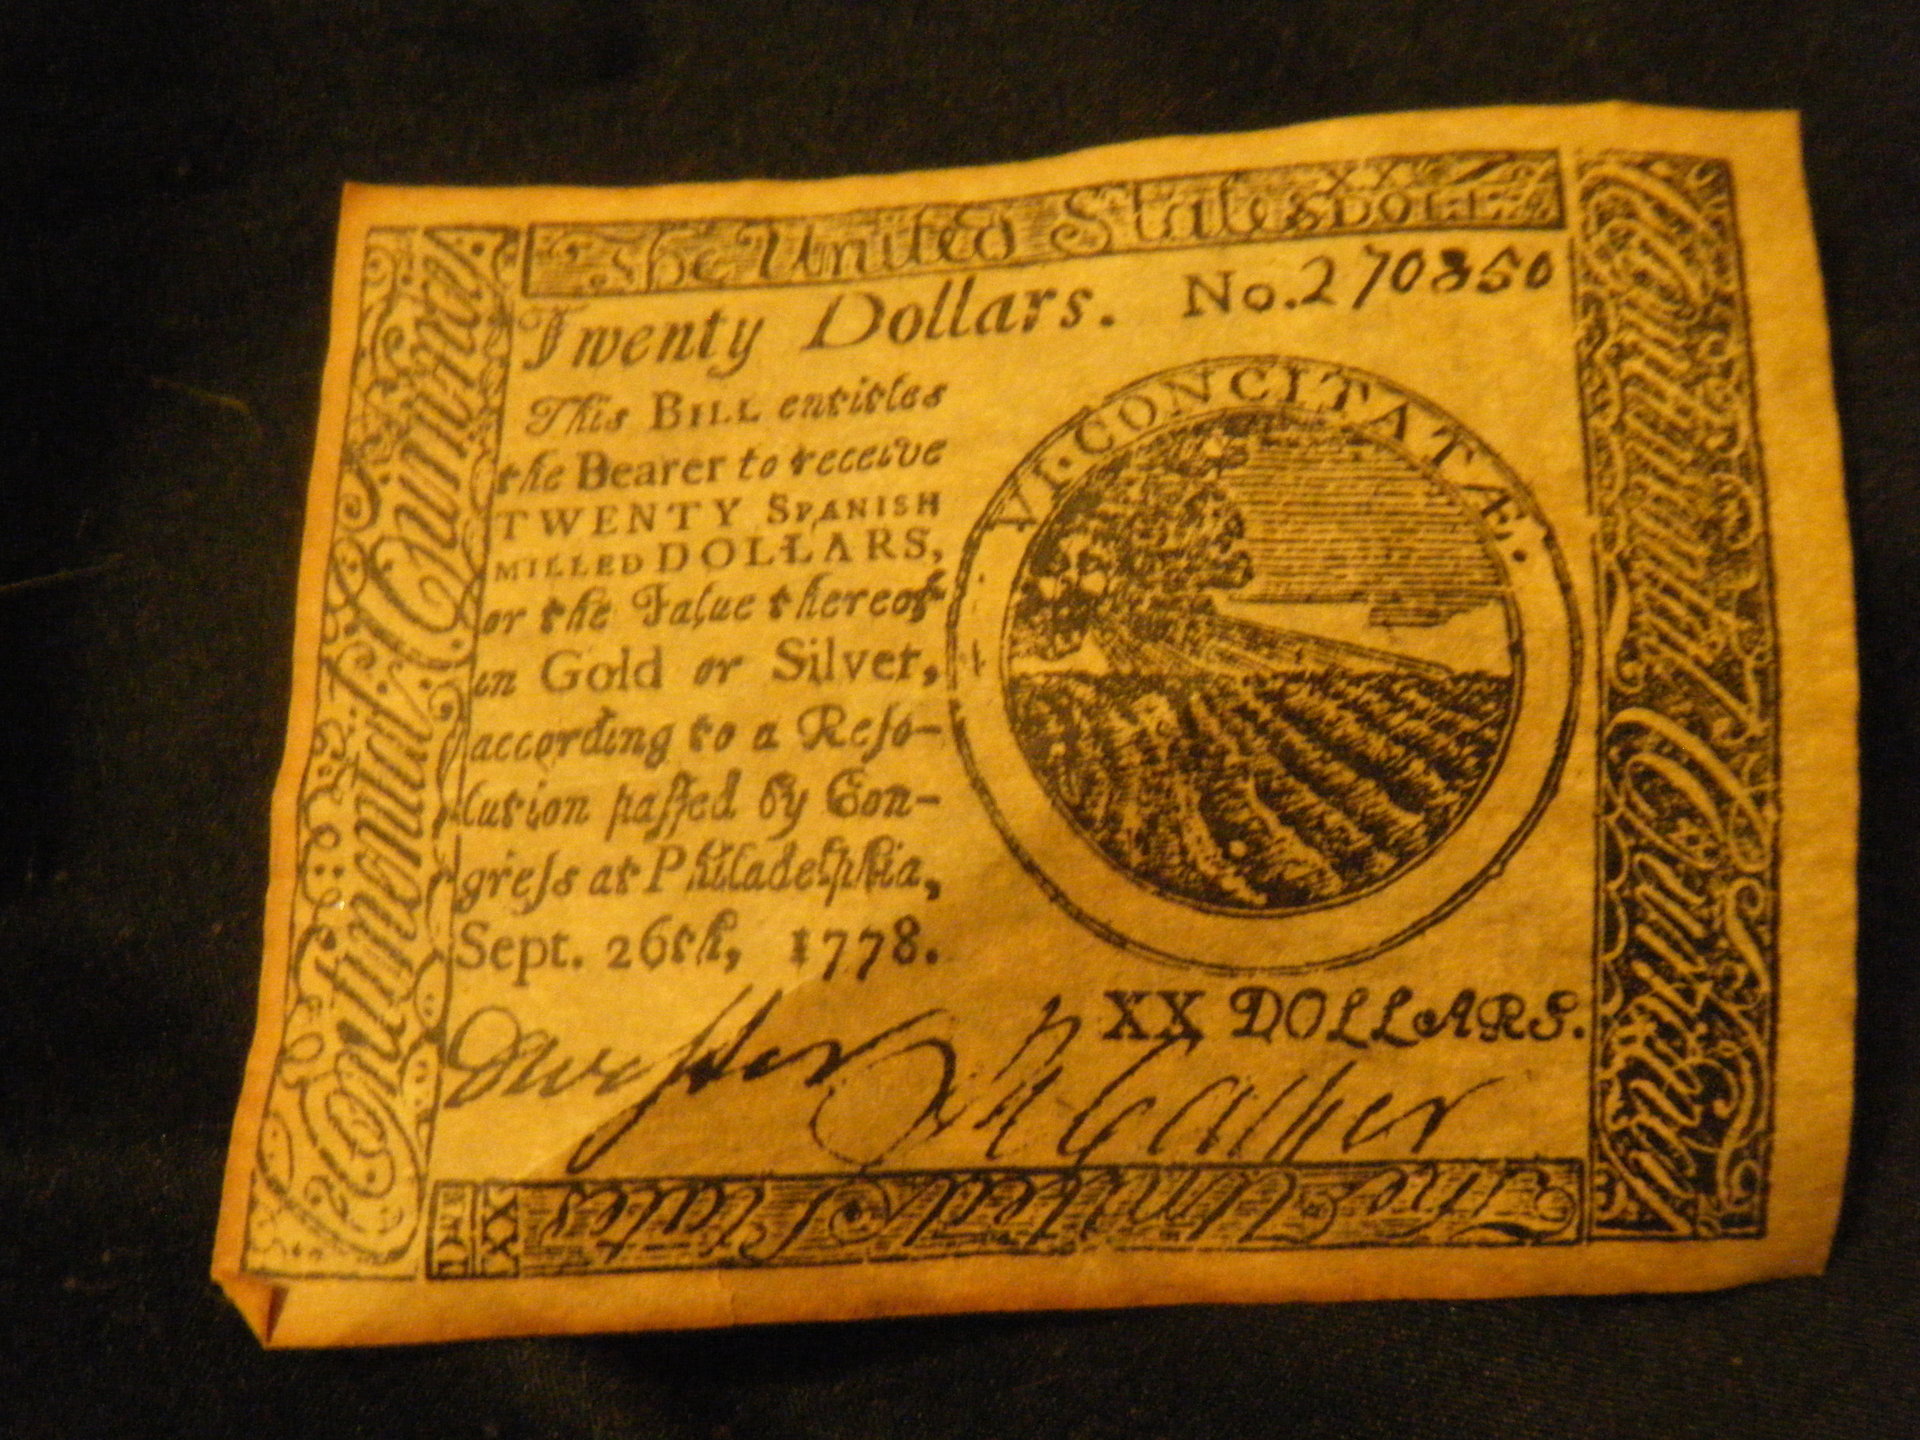 The United States XX DOLL.
Twenty Dollars. No. 270850
This BILL entitles
the Bearer to receive
TWENTY SPANISH
MILLED DOLLARS,
or the Value thereof
in Gold or Silver,
according to a Reſo-
lution paſſed by Con-
greſs at Philadelphia,
Sept. 26th, 1778.
VI·CONCITATÆ.
XX DOLLARS.
Continental Currency
Continental Currency
The United States
XX